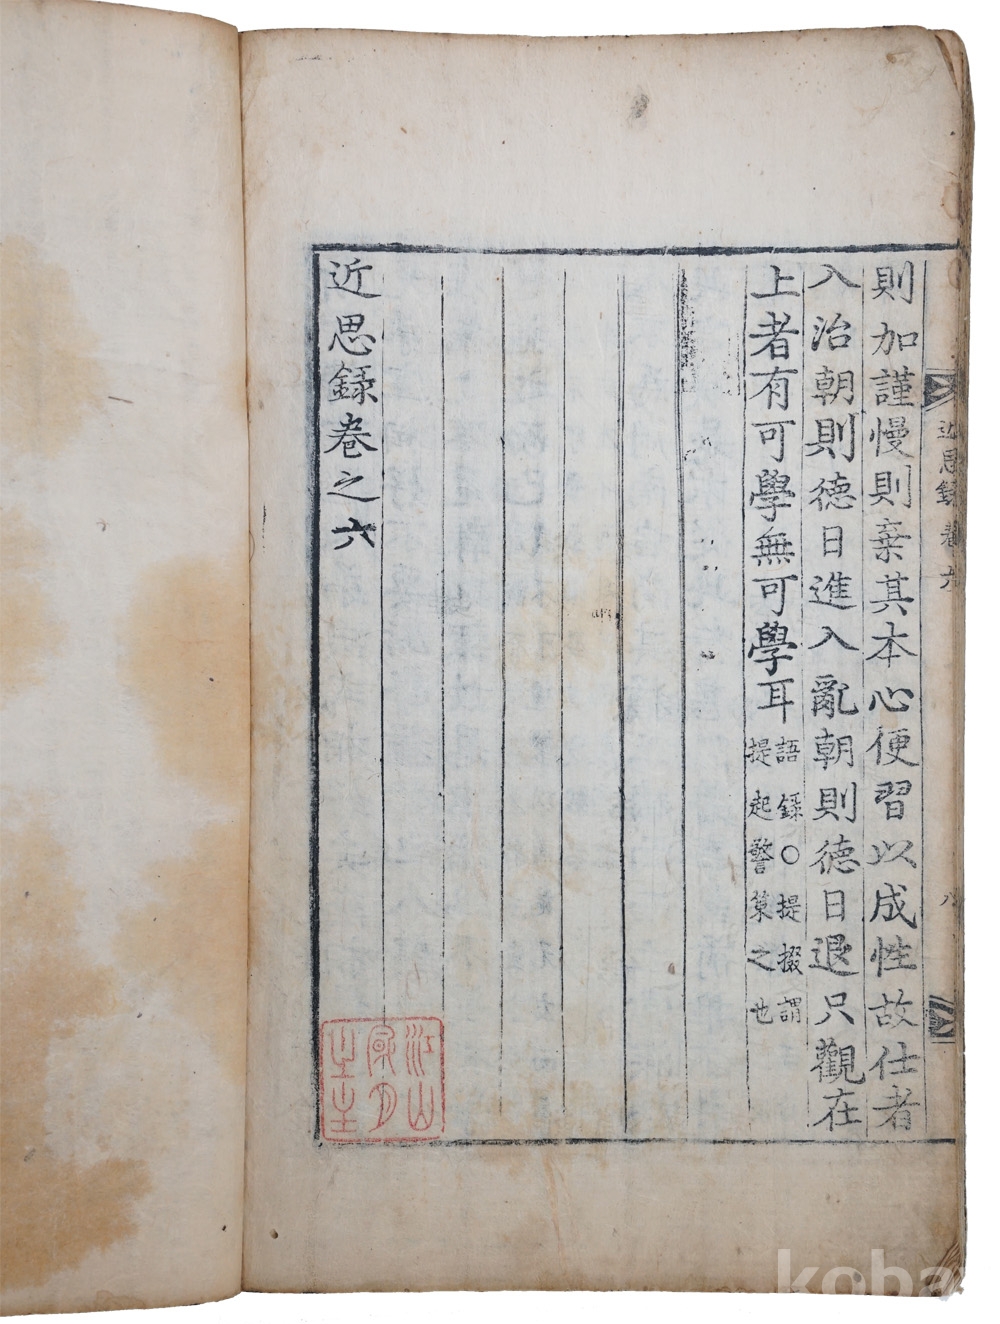 則加謹慢則棄其本心便習以成性故仕者
入治朝則德日進入亂朝則德日退只觀在
上者有可學無可學耳
語錄○提掇謂
提起警䇿之也
近思錄卷之六
近思錄 卷六
八
江山
風月
之主
koba